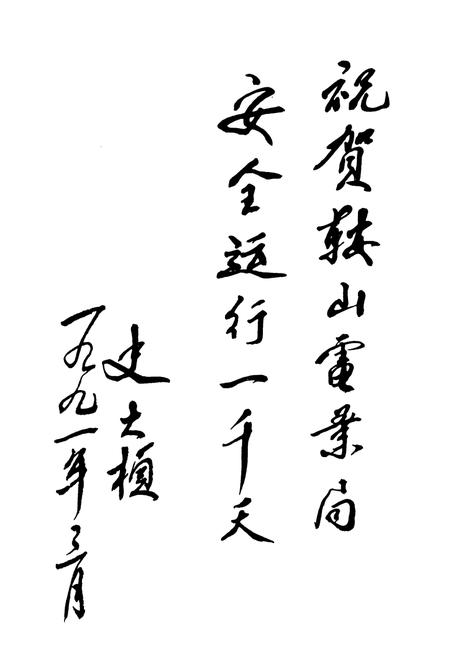 祝賀鞍山電業局
安全運行一千天
史大楨
一九九一年三月